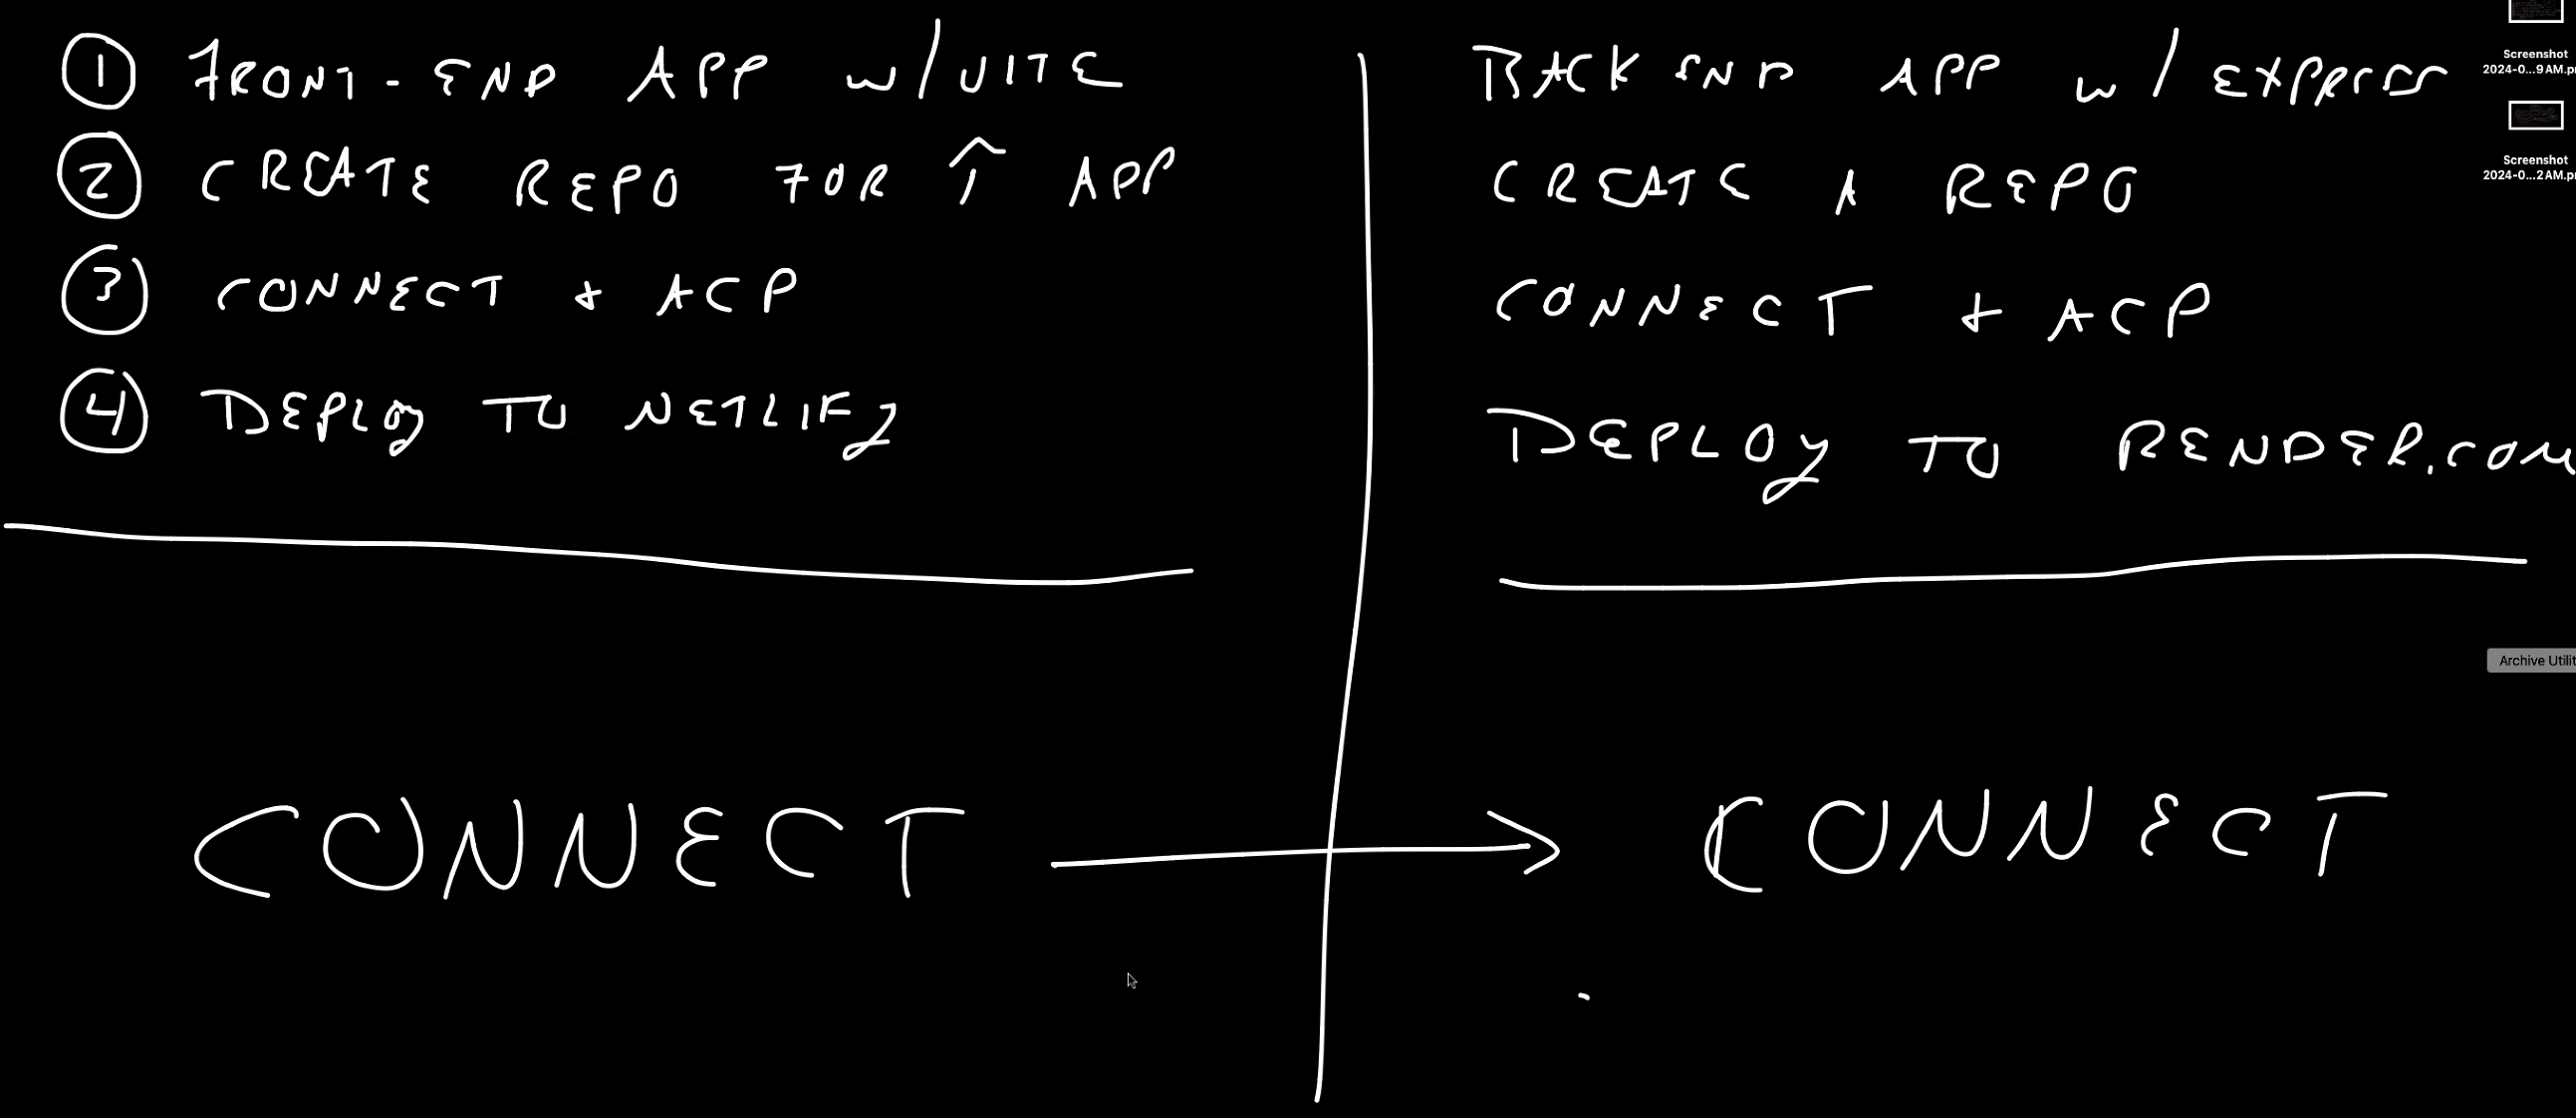 ① FRONT-END APP w/VITE
② CREATE REPO FOR ↑ APP
③ CONNECT + ACP
④ DEPLOY TO NETLIFY
CONNECT →
BACK END APP w/ EXPRESS
CREATE A REPO
CONNECT + ACP
DEPLOY TO RENDER.COM
CONNECT
Screenshot
2024-0...9AM.p
Screenshot
2024-0...2AM.p
Archive Utilit